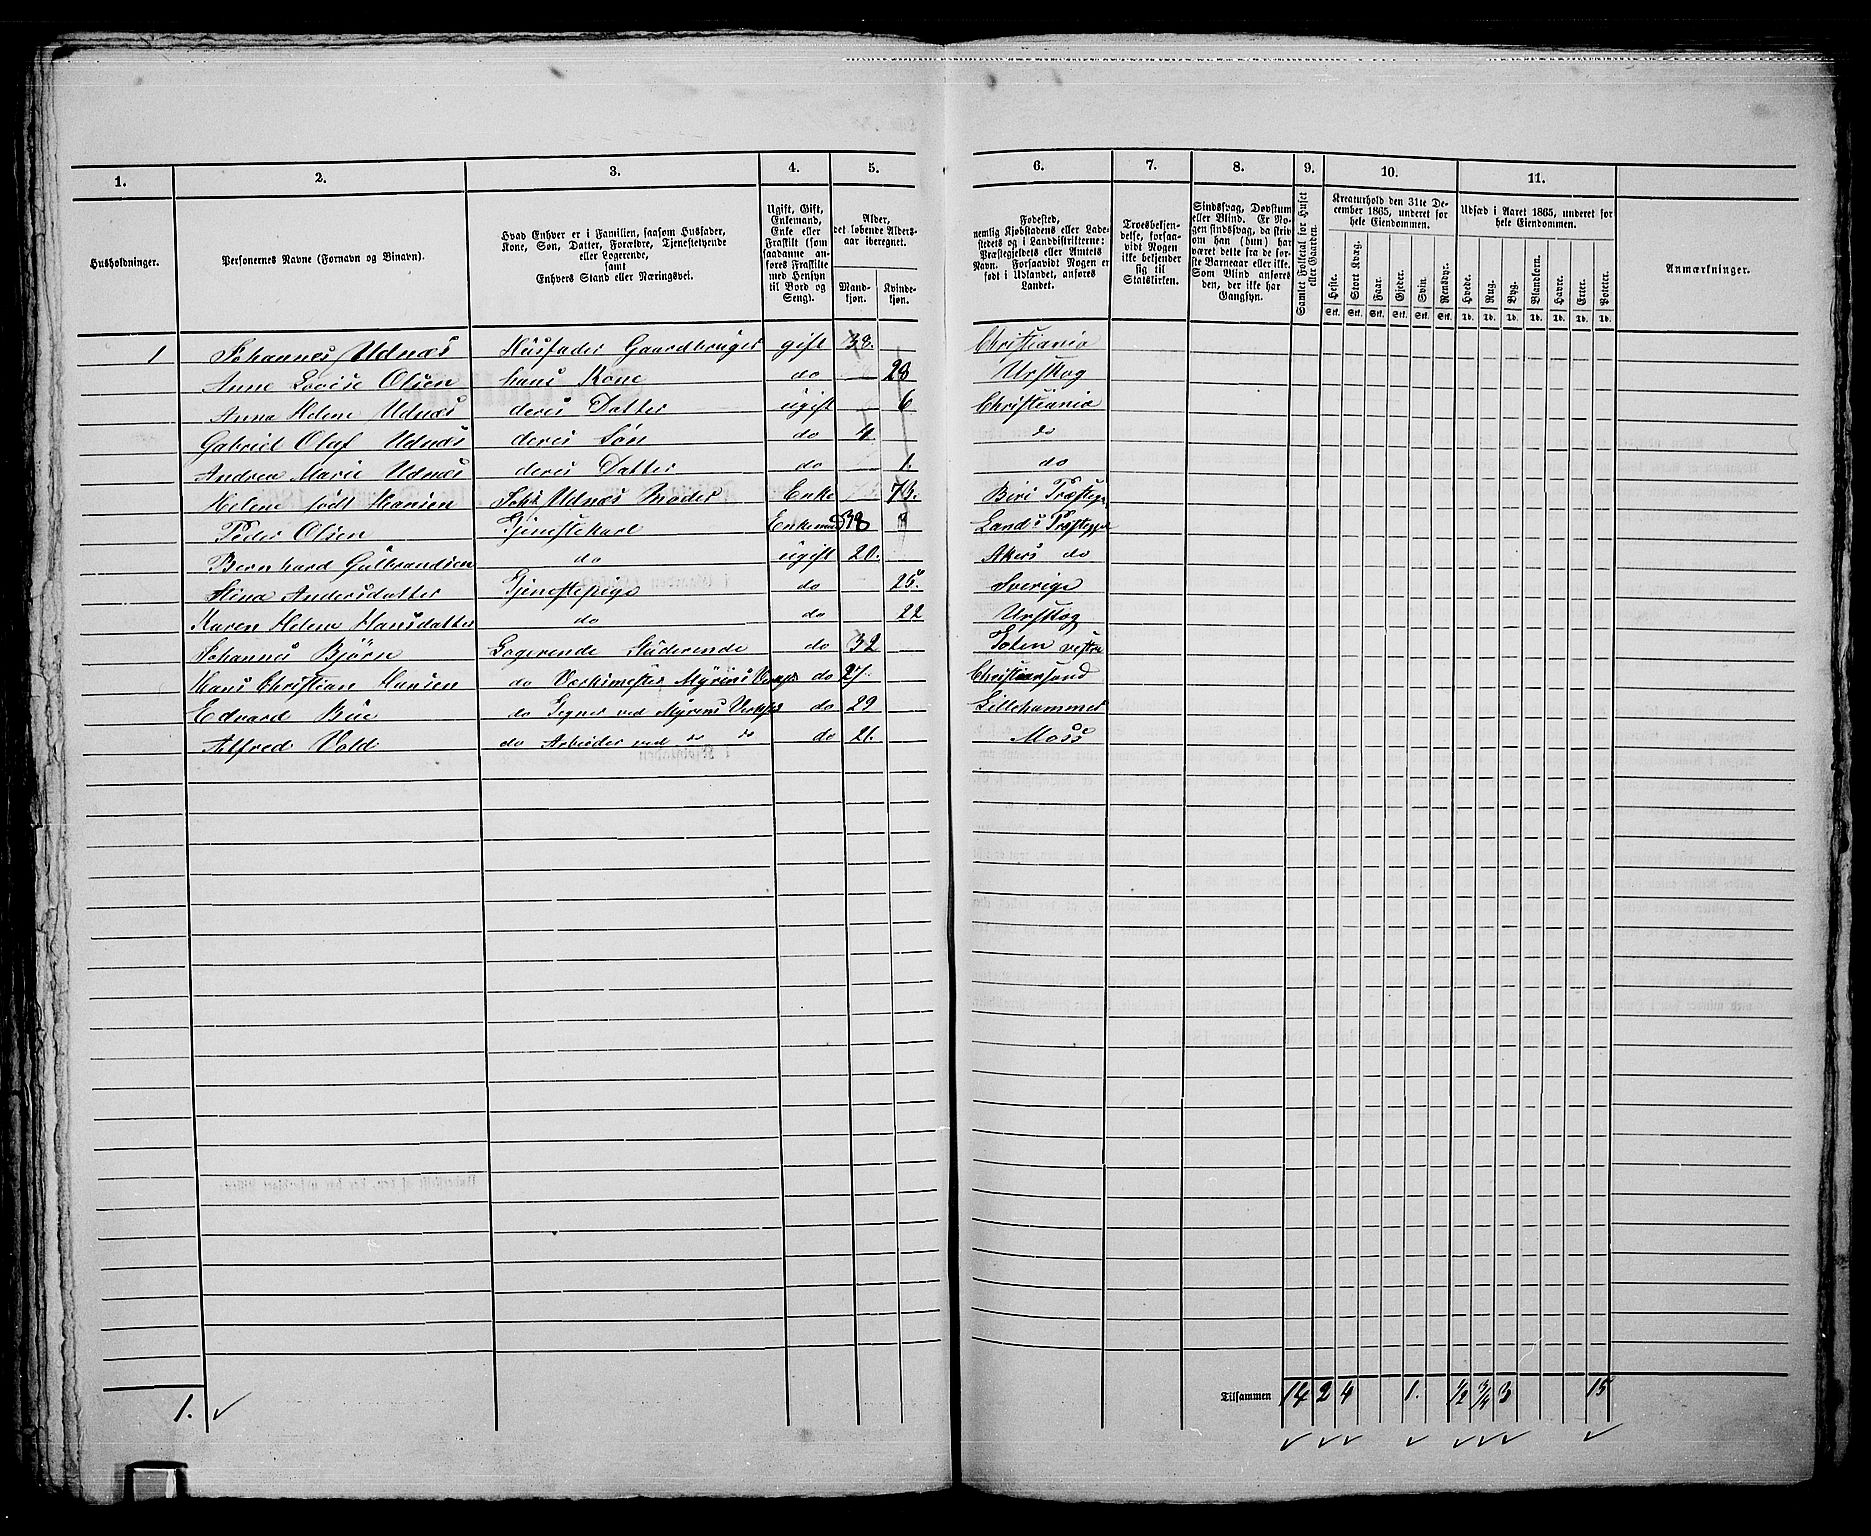 1. 2. 3. 4. 5. 6. 7. 8. 9. 10. 11.
Husholdninger.
Personernes Navne (Fornavn og Binavn).
Hvad Enhver er i Familien, saasom Husfader,
Kone, Søn, Datter, Forældre, Tjenestetyende
eller Logerende,
samt
Enhvers Stand eller Næringsvei.
Ugift, Gift,
Enkemand,
Enke eller
Fraskilt (som
saadanne an-
føres Fraskilte
med Hensyn
til Bord og
Seng).
Alder,
det løbende Alders-
aar iberegnet.
Mand-
kjøn.
Kvinde-
kjøn.
Fødested,
nemlig Kjøbstadens eller Lade-
stedets og i Landdistrikterne:
Præstegjeldets eller Amtets
Navn. Forsaavidt Nogen er
født i Udlandet, anføres
Landet.
Troesbekjen-
delse, forsaa-
vidt Nogen
ikke bekjender
sig til
Statskirken.
Sindssvag, Døvstum
eller Blind. Er No-
gen sindssvag, da skriv
om han (hun) har
været dette fra de før-
ste Barneaar eller ikke.
Som Blind anføres
den, der ikke har
Gangsyn.
Samlet Folketal for Huset
eller Gaarden.
Kreaturhold den 31te De-
cember 1865, underet for
hele Eiendommen.
Heste. Stort Kvæg. Faar. Gjeder. Svin. Rensdyr.
Stk. Stk. Stk. Stk. Stk. Stk.
Udsæd i Aaret 1865, underet for
hele Eiendommen.
Hvede. Rug. Byg. Blandkorn. Havre. Erter. Poteter.
Td. Td. Td. Td. Td. Td. Td.
Anmærkninger.
1 Johannes Udnæs Husfader Gaardbruger gift 38. Christiania
Anne Lovise Olsen hans Kone do 28 Urskog
Anna Helene Udnæs deres Datter ugift 6 Christiania
Gabriel Olaf Udnæs deres Søn do 4 do
Andrea Marie Udnæs deres Datter do 1. do
Helene født Joh. Udnæs Moder Enke 73. Biri Præstegj
Peder Olsen Tjenestekarl Enkemand 38 Lands Præstegj
Bernhard Gulbrandsen do ugift 20. Akers do
Stina Andersdatter Tjenestepige do 25. Sverige
Karen Helene Hansdatter do do 22 Urskog
Johannes Bjørn Logerende Studerende do 32 Toten vestre
Hans Christian Hansen do Værkmester Myrens Værksted do 27. Christiansund
Edvard Bue do Tegner ved Myrens Værksted do 29 Lillehammer
Alfred Vold do Arbeider ved do do do 21. Moss
1. ✓
Tilsammen 14 2 4 1. 1/2 3/4 3 15
✓ ✓ ✓ ✓ ✓ ✓ ✓ ✓